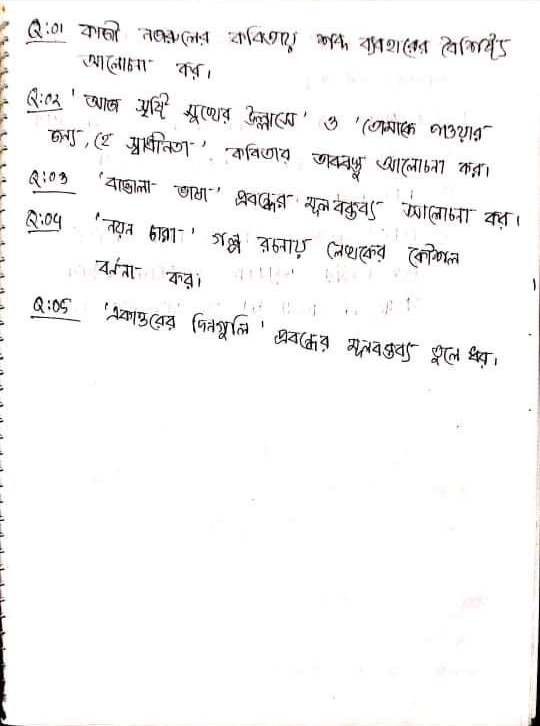 Q:01 কাজী নজরুলের কবিতায় শব্দ ব্যবহারের বৈশিষ্ট্য
আলোচনা কর।
Q:02 'আজ সৃষ্টি সুখের উল্লাসে' ও 'তোমাকে পাওয়ার
জন্য, হে স্বাধীনতা' কবিতার ভাববস্তু আলোচনা কর।
Q:03 'বাঙ্গালা ভাষা' প্রবন্ধের মূলবক্তব্য আলোচনা কর।
Q:04 'নয়ন চারা' গল্প রচনায় লেখকের কৌশল
বর্ননা কর।
Q:05 'একাত্তরের দিনগুলি' প্রবন্ধের মূলবক্তব্য তুলে ধর।